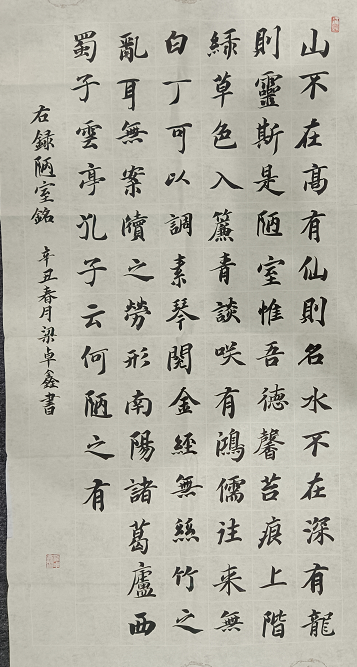 山不在高有仙則名水不在深有龍
則靈斯是陋室惟吾德馨苔痕上階
綠草色入簾青談咲有鴻儒往来無
白丁可以調素琴閱金經無絲竹之
亂耳無案牘之勞形南陽諸葛廬西
蜀子雲亭孔子云何陋之有
右録陋室銘
辛丑春月梁卓鑫書